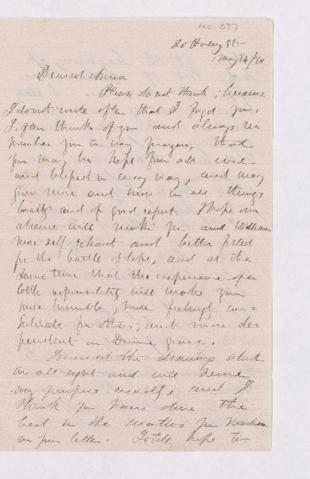 Dearest Anna
Please do not think, because
I don't write often that I forget you,
I often think of you and always re
member you in my prayers, that
you may be kept from all
and blessed in every way, and may
grow more and more in all things
lovely and of good report. I hope our
absence will make you and William
more self-reliant and better fitted
for the battle of life, and at the
same time that the experience of a
little responsibility will make you
more humble, more
for others, and more de
pendent on Divine grace.
I received the drawings which
are all right and will serve
my purpose and I
think you have done the
best in the you mention
in your letter. I still hope to